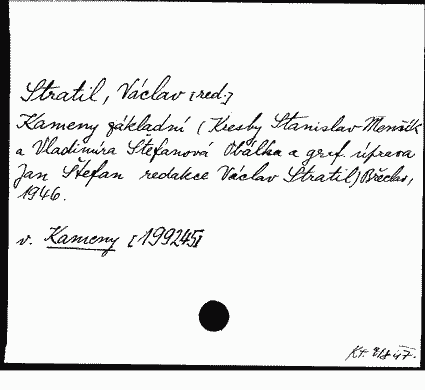 Stratil, Václav [red.]
Kameny základní (Kresby Stanislav Menšík
a Vladimíra Štefanová Obálka a graf. úprava
Jan Štefan redakce Václav Stratil) Břeclav,
1946.
v. Kameny [199245]